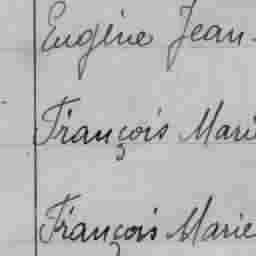 Eugène Jean-
François Marie
François Marie